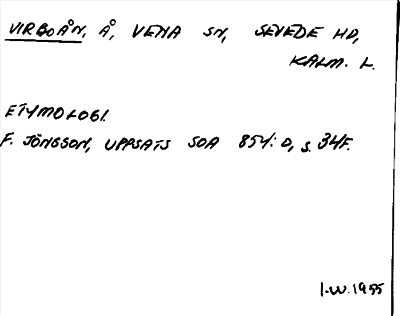 VIRBOÅN, Å, VENA SN, SEVEDE HD,
KALM. L.
ETYMOLOGI.
F. JÖNSSON, UPPSATS SOA 854:D, S. 34F.
I.W. 1955